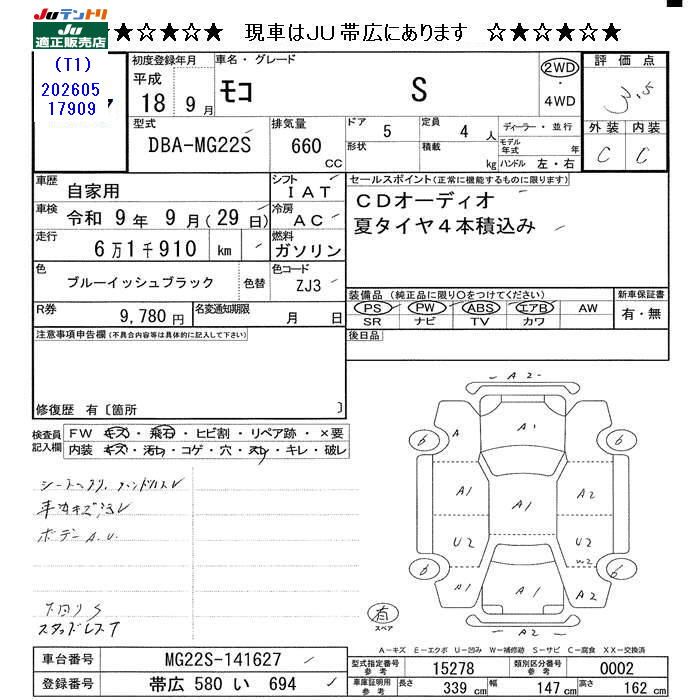 JUテントリ
JU
適正販売店
★☆★☆★ 現車はJU帯広にあります ☆★☆★☆★
(T1)
202605
17909
初度登録年月
平成
18 9 月
車名・グレード
モコ S
2WD
・
4WD
評価点
3.5
外装 内装
C C
型式
DBA-MG22S
排気量
660
CC
ドア 5
形状
定員 4 人
積載 kg
ディーラー・並行
モデル年式 年
ハンドル 左・右
車歴
自家用
シフト
IAT
セールスポイント(正常に機能するものに限ります)
CDオーディオ
夏タイヤ4本積込み
車検 令和 9 年 9 月(29 日)
冷房
AC
走行
6万1千910 km
燃料
ガソリン
色
ブルーイッシュブラック
色替
色コード
ZJ3
装備品(純正品に限り○をつけてください)
PS PW ABS エアB AW
SR ナビ TV カワ
新車保証書
有・無
R券
9,780 円
名変通知期限
月 日
後日品
注意事項申告欄(不具合内容等は具体的に記入して下さい)
修復歴 有〔箇所 〕
検査員
記入欄
FW キズ・飛石・ヒビ割・リペア跡・×要
内装 キズ・汚れ・コゲ・穴・スレ・キレ・破レ
ボデー A.U.
下回りS
A2
A A1
6 6
A1 A1 A2
U2 U2
W2
6 6
A1 A1 A2
A2
有
スペア
A-キズ E-エクボ U-凹み W-補修跡 S-サビ C-腐食 XX-交換済
車台番号 MG22S-141627
登録番号 帯広 580 い 694
型式指定番号
参考
15278
類別区分番号
参考
0002
車庫証明用
参考
長さ 339 cm
幅 147 cm
高さ 162 cm